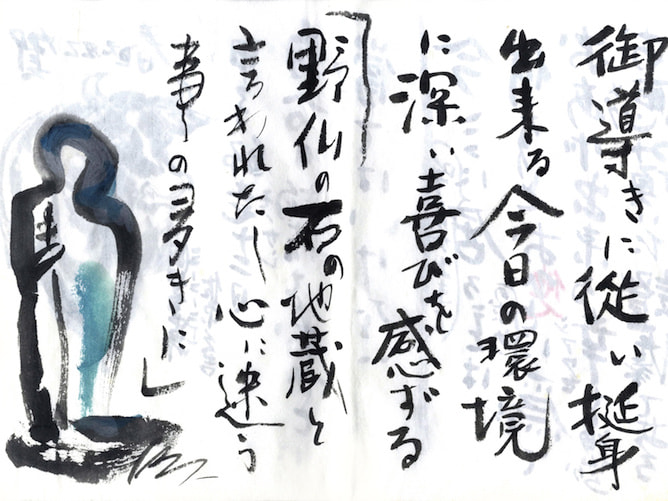 御導きに従い挺身
出来る今日の環境
に深い喜びを感ずる
「野仏の石の地蔵と
言われたし心に迷う
事の多きに」